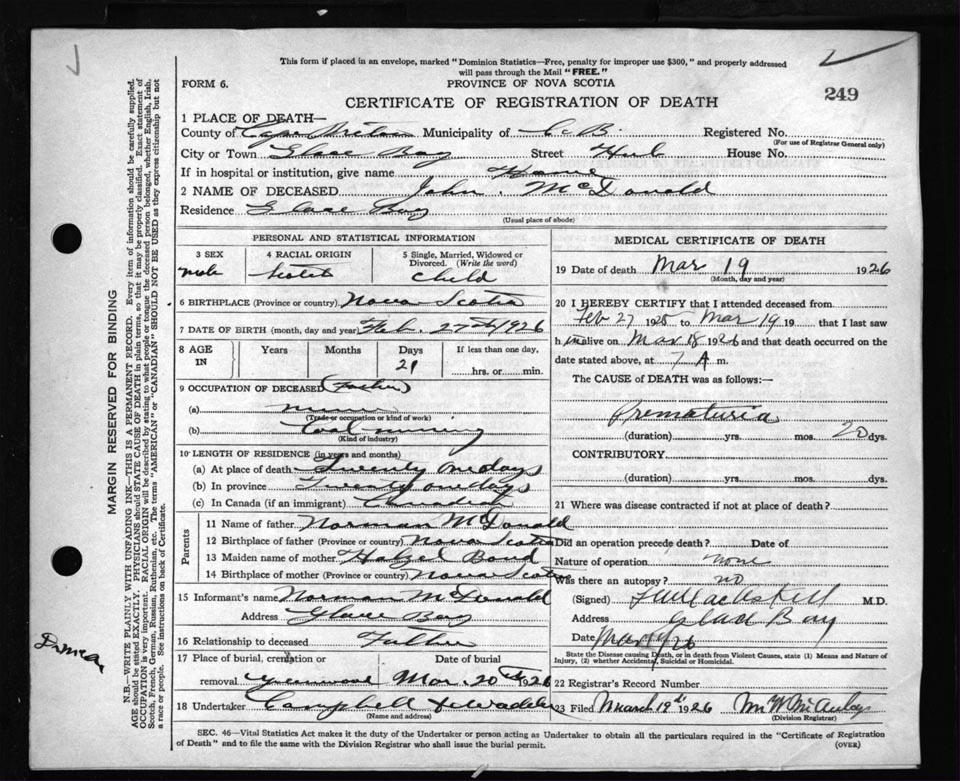 This form if placed in an envelope, marked "Dominion Statistics—Free, penalty for improper use $300," and properly addressed
will pass through the Mail "FREE."
FORM 6.
PROVINCE OF NOVA SCOTIA
CERTIFICATE OF REGISTRATION OF DEATH
249
1 PLACE OF DEATH—
County of Cape Breton Municipality of C. B. Registered No.
(For use of Registrar General only)
City or Town Glace Bay Street Hub House No.
If in hospital or institution, give name Home
2 NAME OF DECEASED John. McDonald
Residence Glace Bay
(Usual place of abode)
PERSONAL AND STATISTICAL INFORMATION
3 SEX
male
4 RACIAL ORIGIN
5 Single, Married, Widowed or
Divorced. (Write the word)
Child
6 BIRTHPLACE (Province or country) Nova Scotia
7 DATE OF BIRTH (month, day and year) Feb. 27th 1926
8 AGE
IN
Years
Months
Days
21
If less than one day,
hrs. or min.
9 OCCUPATION OF DECEASED (Father)
(a) miner
(Trade or occupation or kind of work)
(b) Coal mining
(Kind of industry)
10 LENGTH OF RESIDENCE (in years and months)
(a) At place of death Twenty one days
(b) In province Twenty one days
(c) In Canada (if an immigrant) Canadian
Parents
11 Name of father Norman McDonald
12 Birthplace of father (Province or country) Nova Scotia
13 Maiden name of mother Hazel Bond
14 Birthplace of mother (Province or country) Nova Scotia
15 Informant's name Norman McDonald
Address Glace Bay
16 Relationship to deceased Father
17 Place of burial, cremation or
removal Greenwood
Date of burial
Mar. 20th 1926
18 Undertaker Campbell
(Name and address)
MEDICAL CERTIFICATE OF DEATH
19 Date of death Mar 19 1926
(Month, day and year)
20 I HEREBY CERTIFY that I attended deceased from
Feb 27 1925 to Mar 19 19 that I last saw
him alive on Mar 18 1926 and that death occurred on the
date stated above, at 7 A m.
The CAUSE of DEATH was as follows:—
Prematuria
(duration) yrs. mos. 20 dys.
CONTRIBUTORY.
(duration) yrs. mos. dys.
21 Where was disease contracted if not at place of death?
Did an operation precede death? Date of
Nature of operation none
Was there an autopsy? no
(Signed) MacAskill M.D.
Address Glace Bay
Date Mar 26
State the Disease causing Death, or in death from Violent Causes, state (1) Means and Nature of
Injury, (2) whether Accidental, Suicidal or Homicidal.
22 Registrar's Record Number
23 Filed March 19th 1926 McAulay
(Division Registrar)
SEC. 46—Vital Statistics Act makes it the duty of the Undertaker or person acting as Undertaker to obtain all the particulars required in the "Certificate of Registration
of Death" and to file the same with the Division Registrar who shall issue the burial permit.
(OVER)
MARGIN RESERVED FOR BINDING
N.B.—WRITE PLAINLY WITH UNFADING INK—THIS IS A PERMANENT RECORD. Every item of information should be carefully supplied.
AGE should be stated EXACTLY. PHYSICIANS should STATE CAUSE OF DEATH in plain terms, so that it may be properly classified. Exact statement of
OCCUPATION is very important. RACIAL ORIGIN will be described by stating to what people or tongue the deceased person belonged, whether English, Irish,
Scotch, French, German, Russian, Ruthenian, etc. The terms "AMERICAN" or "CANADIAN" SHOULD NOT BE USED as they express citizenship but not
a race or people. See instructions on back of Certificate.